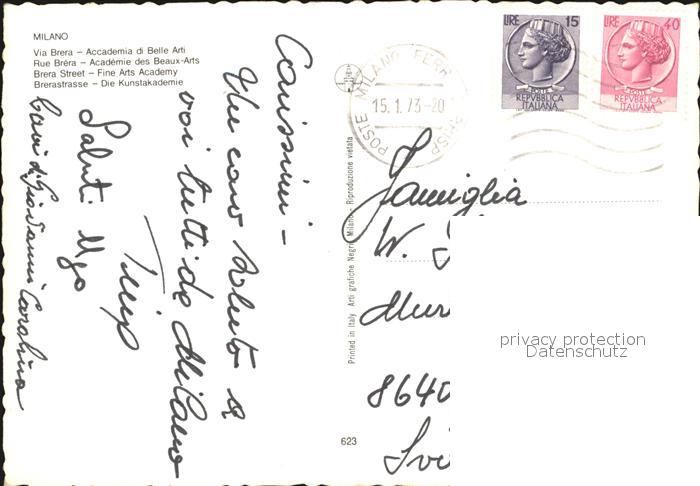 MILANO
Via Brera – Accademia di Belle Arti
Rue Bréra – Académie des Beaux-Arts
Brera Street – Fine Arts Academy
Brerastrasse – Die Kunstakademie
Carissimi –
Un caro saluto a
voi tutti da Milano
Saluti Ugo
Giovanni Carolina
Printed in Italy Arti grafiche Negri Milano - Riproduzione vietata
623
POSTE MILANO FERR
15.1.73-20
LIRE 15
POSTE
REPVBBLICA
ITALIANA
LIRE 40
POSTE
REPVBBLICA
ITALIANA
Famiglia
W.
8640
privacy protection
Datenschutz